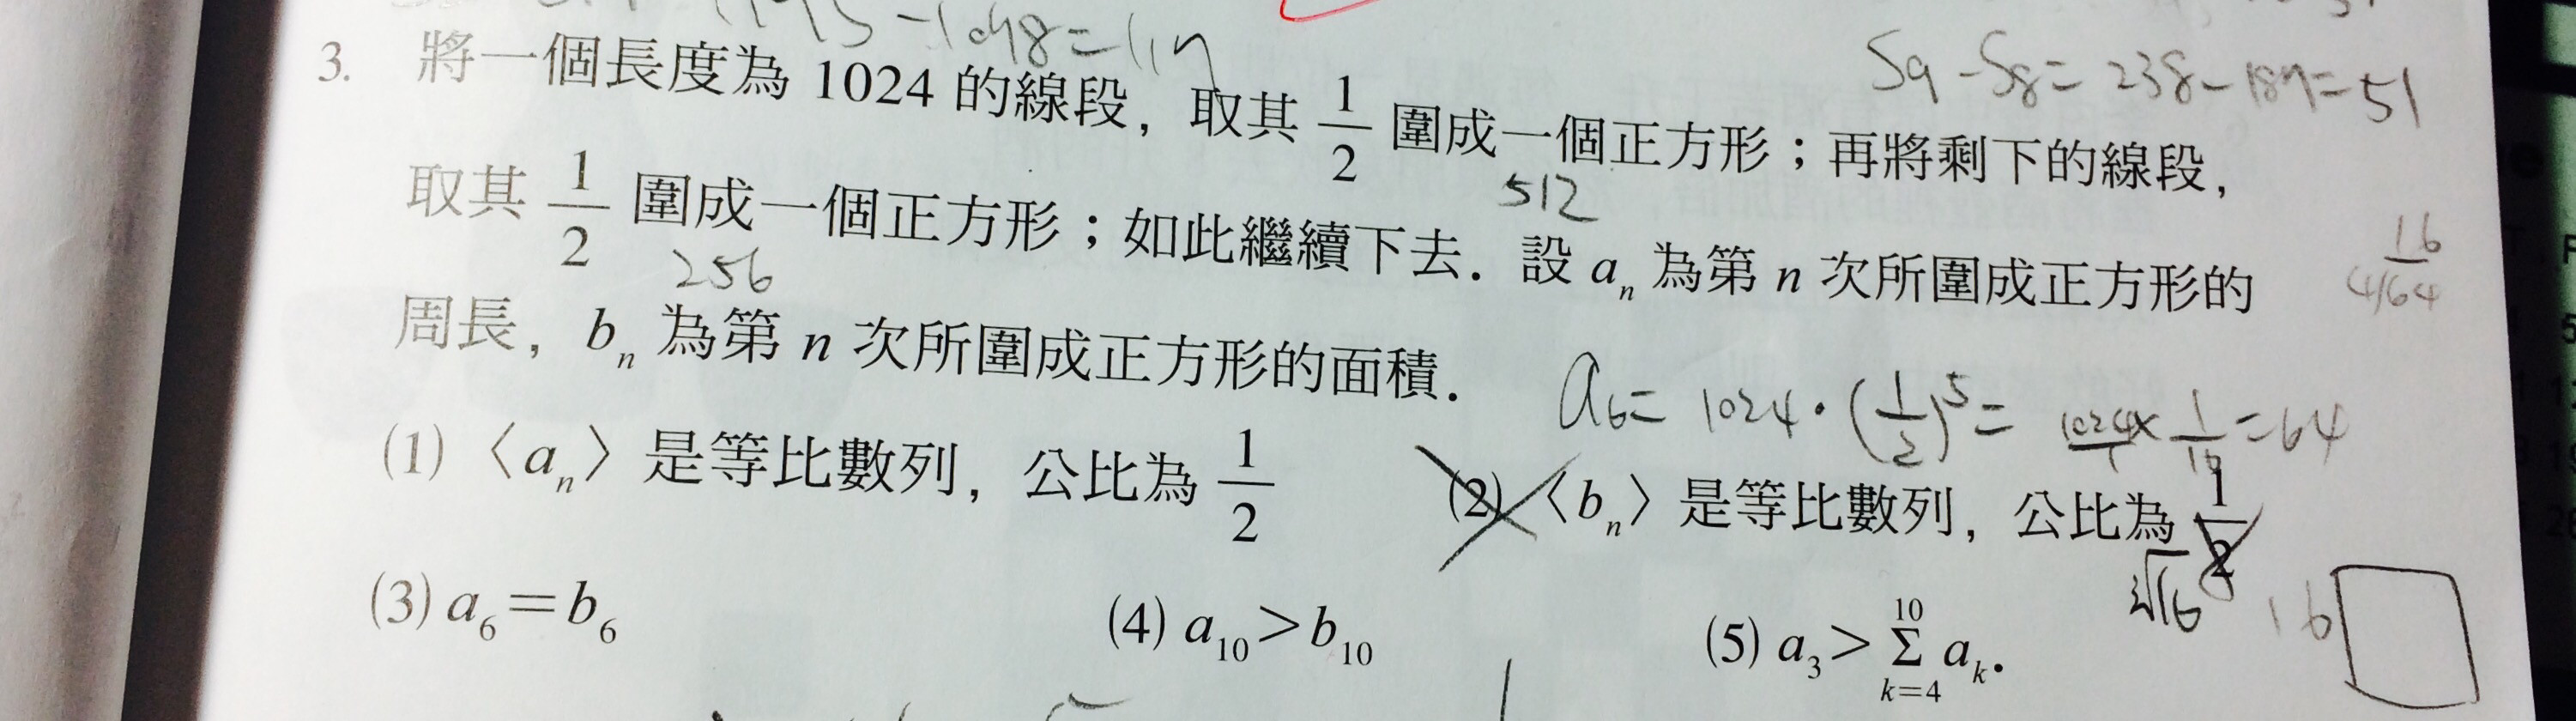 -1048=117
S9-S8=238-187=51
3. 將一個長度為 1024 的線段，取其 1/2 圍成一個正方形；再將剩下的線段，
512
取其 1/2 圍成一個正方形；如此繼續下去．設 aₙ 為第 n 次所圍成正方形的
256
16
4/64
周長，bₙ 為第 n 次所圍成正方形的面積．
a6=1024·(1/2)^5=1024/1×1/16=64
(1)〈aₙ〉是等比數列，公比為 1/2 (2)〈bₙ〉是等比數列，公比為 1/2
16
(3) a₆＝b₆ (4) a₁₀＞b₁₀ (5) a₃＞Σ(k=4→10) aₖ．